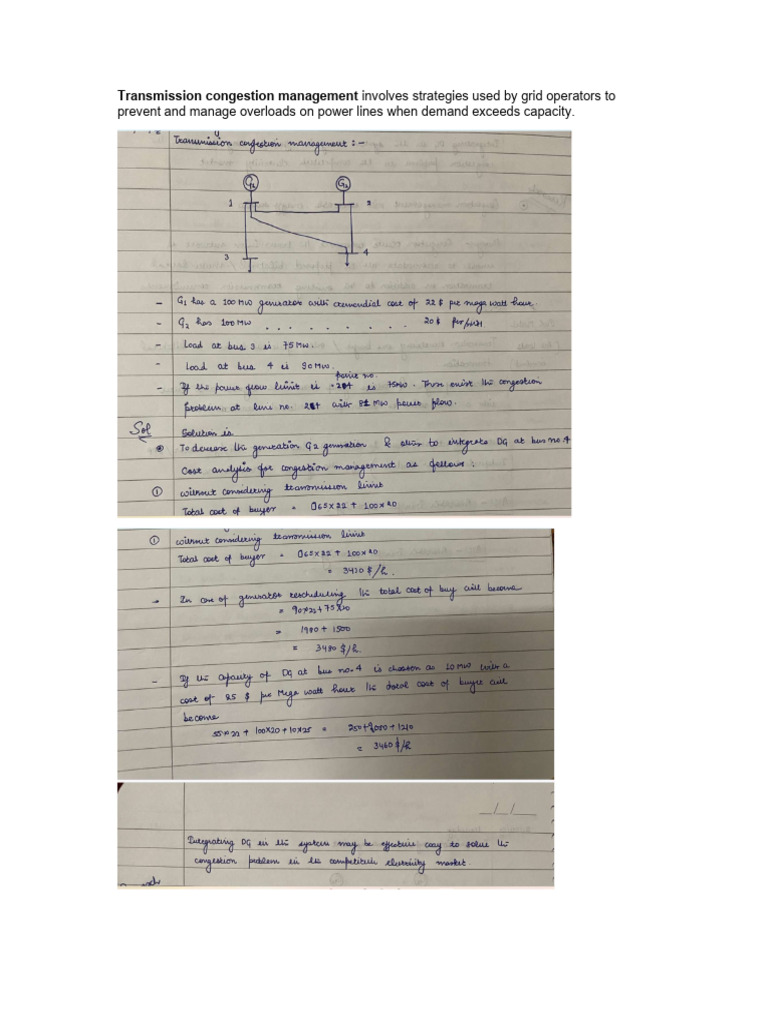 Transmission congestion management involves strategies used by grid operators to
prevent and manage overloads on power lines when demand exceeds capacity.
Transmission congestion management :-
G2
G2
1
2
3
4
- G1 has a 100 MW generator with cost of 22 $ per mega watt hour.
- G2 has 100 MW . . . . . . . . . 20 $ per
- Load at bus 3 is 75 MW.
- Load at bus 4 is 90 MW.
no.
- If the power flow limit is 2 is 75 MW. Then exist the congestion
problem at line no. with MW power flow.
Sol
Solution is
To decrease the generation G2 generation & also to integrate DG at bus no. 4
Cost analysis for congestion management as follows :
① without considering transmission limit
Total cost of buyer = 65 x 22 + 100 x 20
① without considering transmission limit
Total cost of buyer = 65 x 22 + 100 x 20
= 3430 $/h.
- In case of generator rescheduling the total cost of buy will become
= 90 x 22 + 75 x 20
= 1980 + 1500
= 3480 $/h.
- If the capacity of DG at bus no. 4 is as 10 MW with a
cost of 25 $ per Mega watt hour the total cost of buyer will
become
55 x 22 + 100 x 20 + 10 x 25 = 250 + 2000 + 1210
= 3460 $/h
_/_/_
Integrating DG in the system may be effective way to solve the
congestion problem in the competitive electricity market.